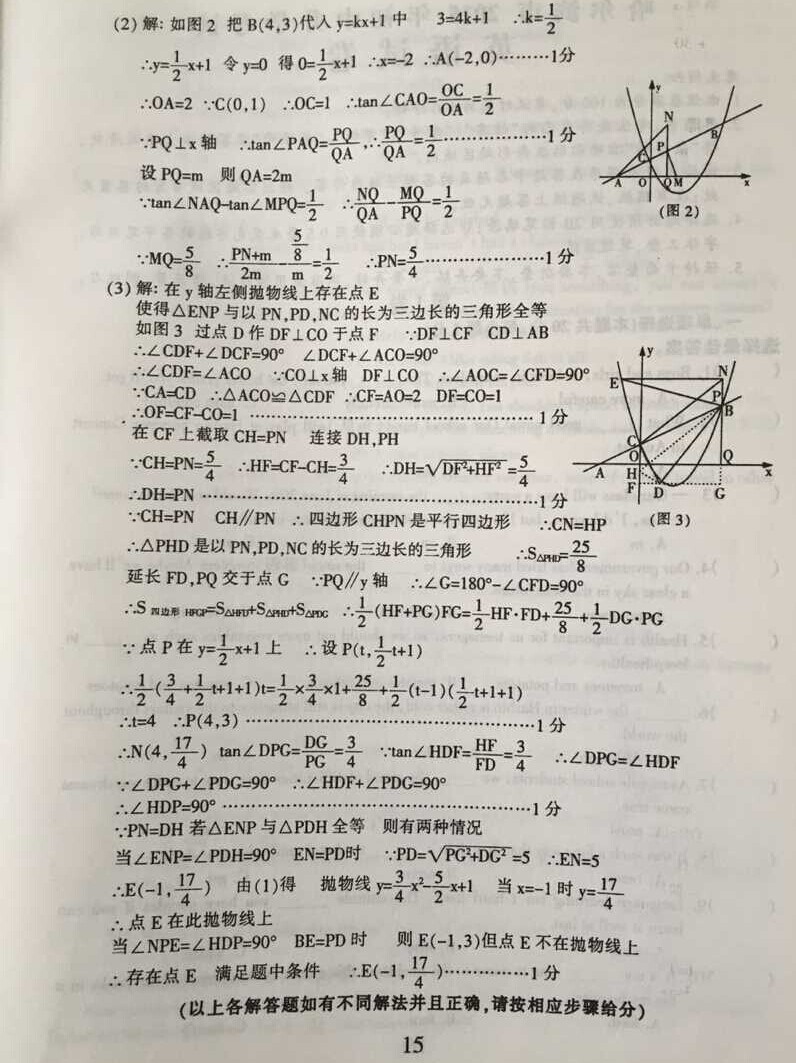 (2) 解: 如图 2 把 B(4,3)代入 y=kx+1 中 3=4k+1 ∴k=1/2
∴y=1/2x+1 令 y=0 得 0=1/2x+1 ∴x=-2 ∴A(-2,0)………1分
∴OA=2 ∵C(0,1) ∴OC=1 ∴tan∠CAO=OC/OA=1/2
∵PQ⊥x 轴 ∴tan∠PAQ=PQ/QA,∴PQ/QA=1/2………………1 分
设 PQ=m 则 QA=2m
∵tan∠NAQ-tan∠MPQ=1/2 ∴NQ/QA-MQ/PQ=1/2
∵MQ=5/8 ∴(PN+m)/2m-(5/8)/m=1/2 ∴PN=5/4…………………1 分
y
N
B
C
P
A
O
Q
M
x
(图 2)
(3) 解: 在 y 轴左侧抛物线上存在点 E
使得△ENP 与以 PN,PD,NC 的长为三边长的三角形全等
如图 3 过点 D 作 DF⊥CO 于点 F ∵DF⊥CF CD⊥AB
∴∠CDF+∠DCF=90° ∠DCF+∠ACO=90°
∴∠CDF=∠ACO ∵CO⊥x 轴 DF⊥CO ∴∠AOC=∠CFD=90°
∵CA=CD ∴△ACO≌△CDF ∴CF=AO=2 DF=CO=1
∴OF=CF-CO=1 ……………………………………………1 分
在 CF 上截取 CH=PN 连接 DH,PH
∵CH=PN=5/4 ∴HF=CF-CH=3/4 ∴DH=√(DF²+HF²)=5/4
∴DH=PN ……………………………………………………1 分
∵CH=PN CH∥PN ∴四边形 CHPN 是平行四边形 ∴CN=HP
y
E
N
P
B
C
O
Q
A
x
H
F
D
G
(图 3)
∴△PHD 是以 PN,PD,NC 的长为三边长的三角形 ∴S△PHD=25/8
延长 FD,PQ 交于点 G ∵PQ∥y 轴 ∴∠G=180°-∠CFD=90°
∴S 四边形 HFGP=S△HFD+S△PHD+S△PDG ∴1/2(HF+PG)FG=1/2HF·FD+25/8+1/2DG·PG
∵点 P 在 y=1/2x+1 上 ∴设 P(t,1/2t+1)
∴1/2(3/4+1/2t+1+1)t=1/2×3/4×1+25/8+1/2(t-1)(1/2t+1+1)
∴t=4 ∴P(4,3) ……………………………………………1 分
∴N(4,17/4) tan∠DPG=DG/PG=3/4 ∵tan∠HDF=HF/FD=3/4 ∴∠DPG=∠HDF
∵∠DPG+∠PDG=90° ∴∠HDF+∠PDG=90°
∴∠HDP=90° ………………………………………………1 分
∵PN=DH 若△ENP 与△PDH 全等 则有两种情况
当∠ENP=∠PDH=90° EN=PD时 ∵PD=√(PG²+DG²)=5 ∴EN=5
∴E(-1,17/4) 由(1)得 抛物线 y=3/4x²-5/2x+1 当 x=-1 时 y=17/4
∴点 E 在此抛物线上
当∠NPE=∠HDP=90° BE=PD 时 则 E(-1,3)但点 E 不在抛物线上
∴存在点 E 满足题中条件 ∴E(-1,17/4)……………1 分
(以上各解答题如有不同解法并且正确,请按相应步骤给分)
15